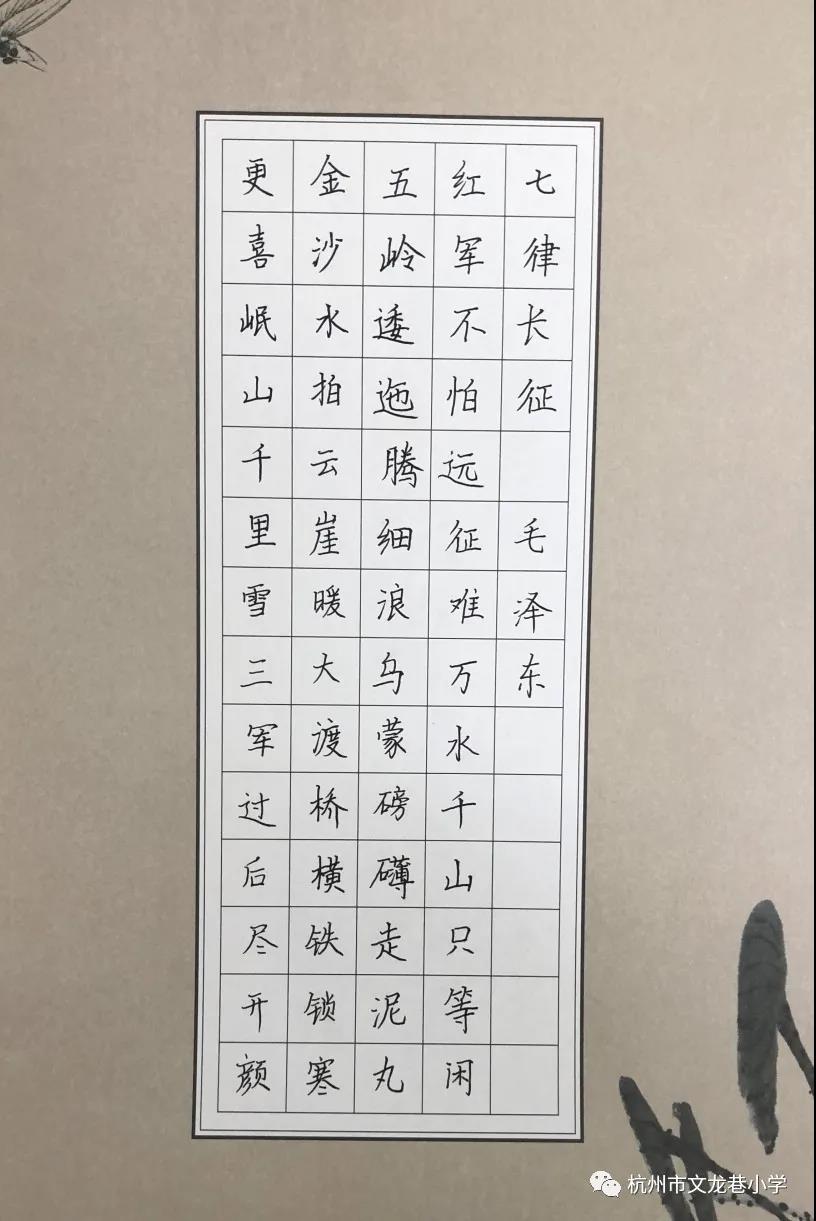 七律长征 毛泽东
红军不怕远征难万水千山只等闲
五岭逶迤腾细浪乌蒙磅礴走泥丸
金沙水拍云崖暖大渡桥横铁锁寒
更喜岷山千里雪三军过后尽开颜
杭州市文龙巷小学